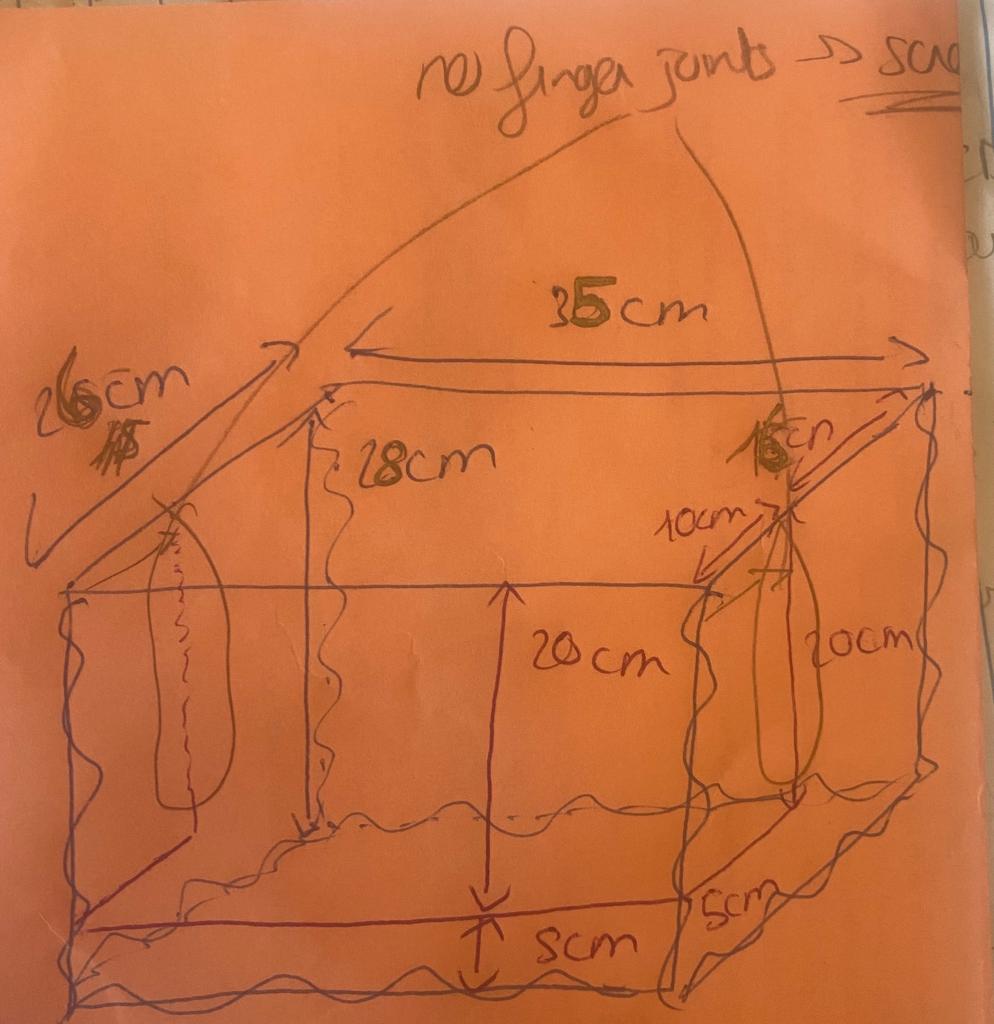 no finger joints
35cm
26cm
28cm
16cm
10cm
20cm
20cm
5cm
8cm